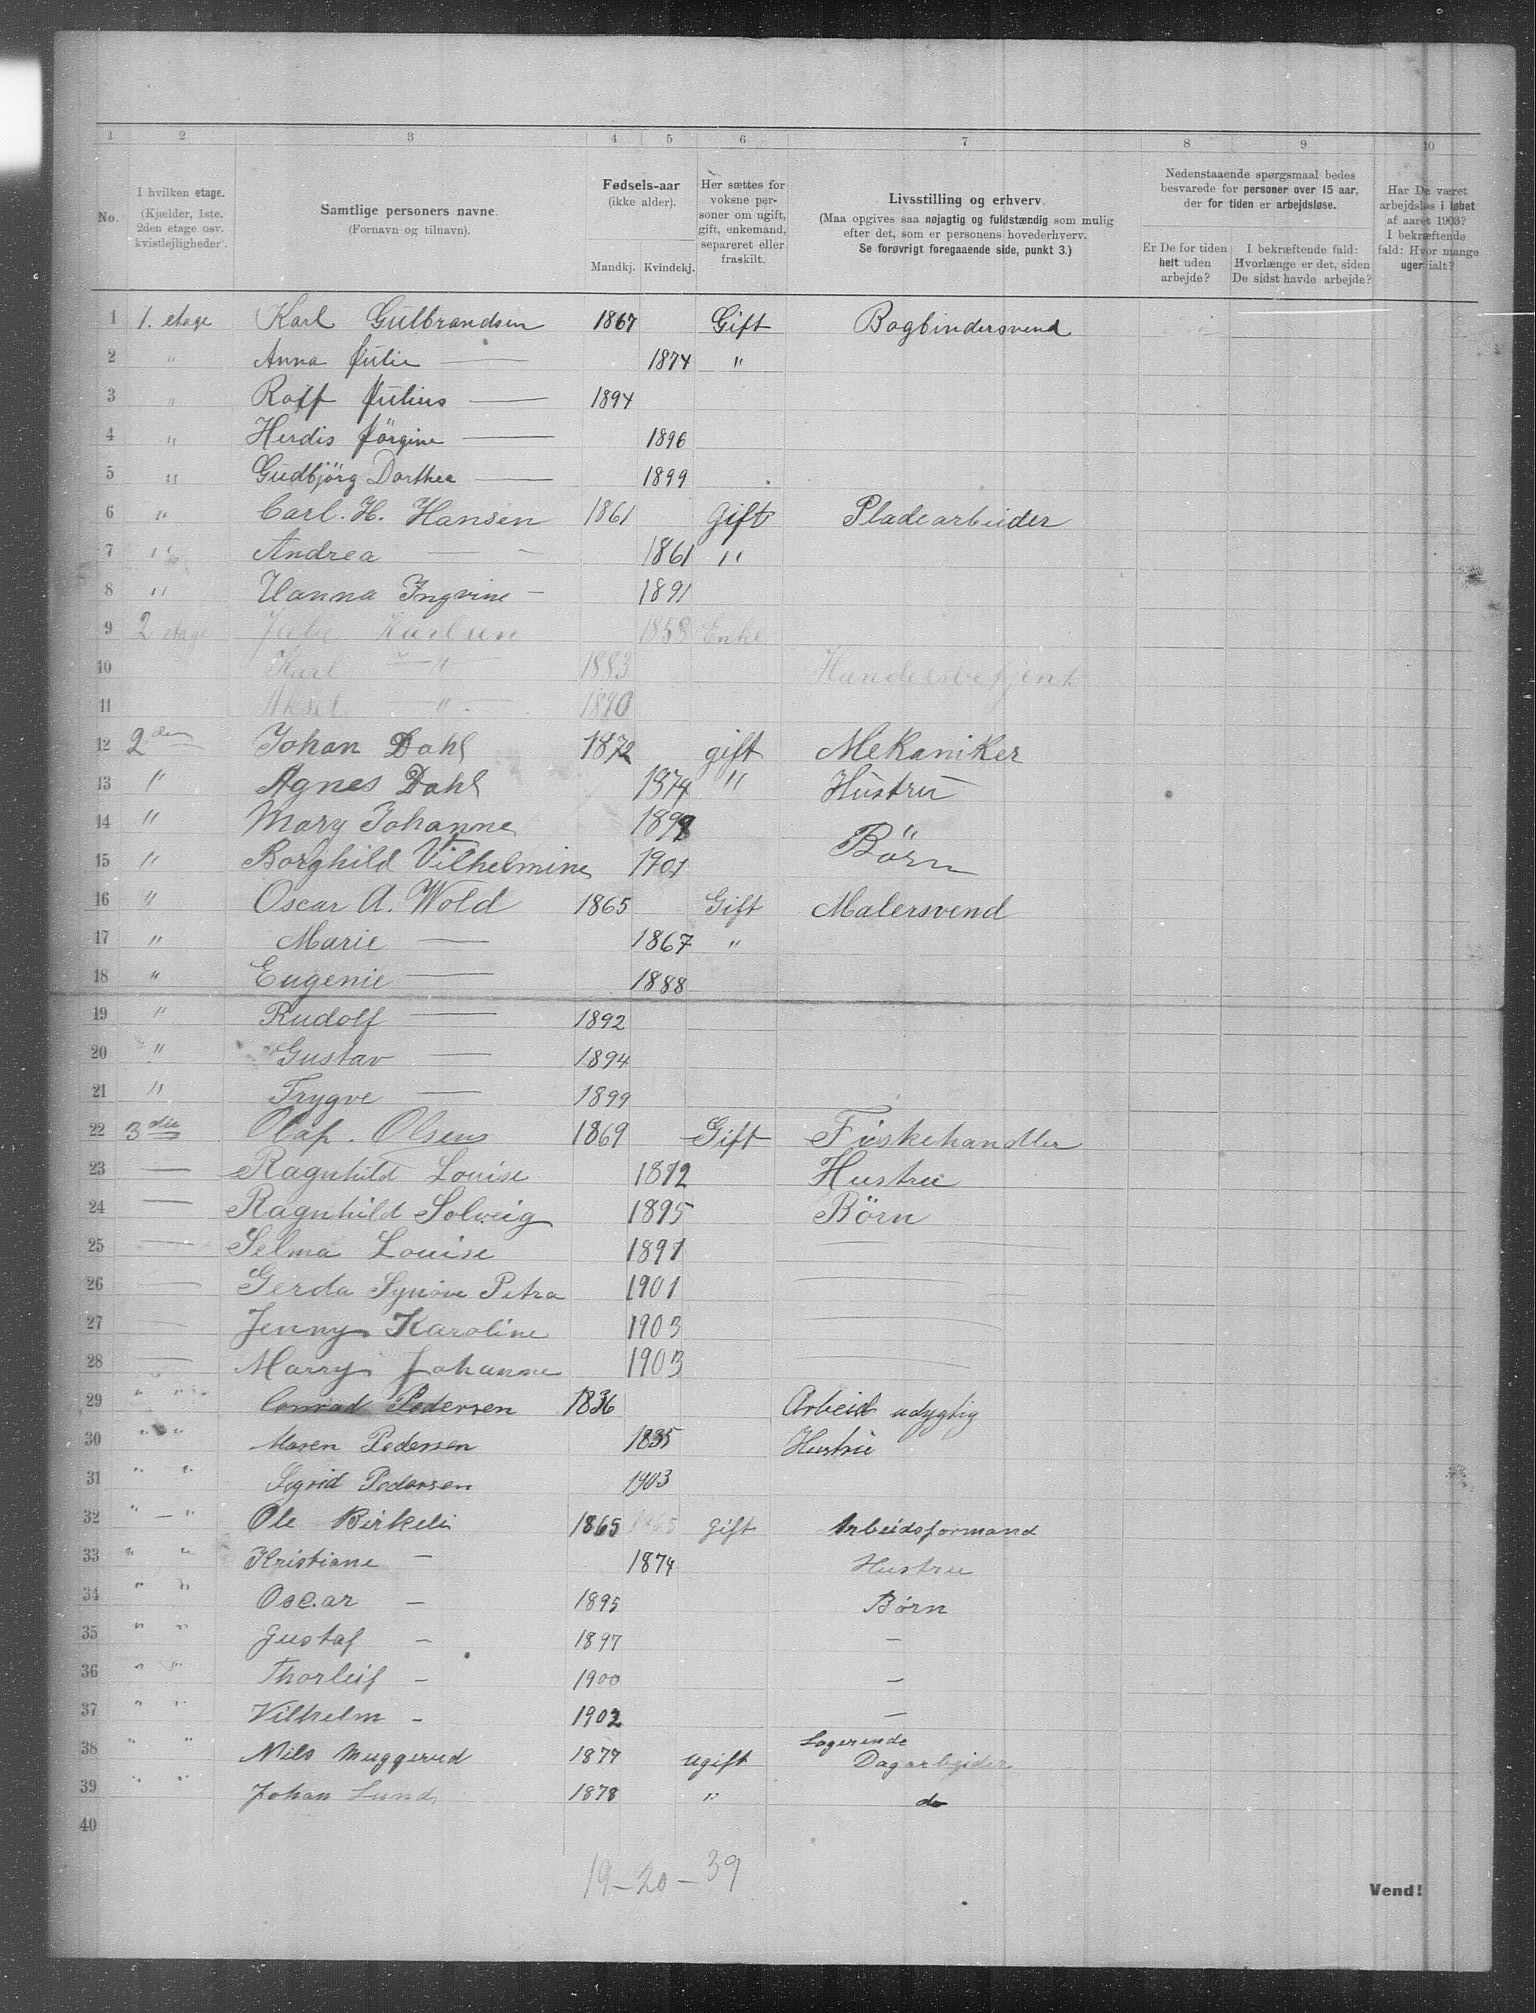 1 2 3 4 5 6 7 8 9 10
No.
I hvilken etage.
(Kjælder, 1ste.
2den etage osv.
kvistlejligheder).
Samtlige personers navne.
(Fornavn og tilnavn).
Fødsels-aar
(ikke alder).
Mandkj. Kvindekj.
Her sættes for
voksne per-
soner om ugift,
gift, enkemand,
separeret eller
fraskilt.
Livsstilling og erhverv.
(Maa opgives saa nøjagtig og fuldstændig som mulig
efter det, som er personens hovederhverv.
Se forøvrigt foregaaende side, punkt 3.)
Nedenstaaende spørgsmaal bedes
besvarede for personer over 15 aar,
der for tiden er arbejdsløse.
Er De for tiden
helt uden
arbejde?
I bekræftende fald:
Hvorlænge er det, siden
De sidst havde arbejde?
Har De været
arbejdsløs i løbet
af aaret 1903?
I bekræftende
fald: Hvor mange
uger ialt?
1 1. etage Karl Gulbrandsen 1867 Gift Bogbindersvend
2 " Anna Julie — 1874 "
3 " Rolf Julius — 1894
4 " Herdis Jörgine — 1896
5 " Gudbjörg Dorthea — 1899
6 " Carl. H. Hansen 1861 Gift Pladearbeider
7 " Andrea — - 1861 "
8 " Hanna Ingvine - 1891
9 2 etage Julie Karlsen 1853 Enke
10 Karl — " — 1883 Handelsbetjent
11 Aksel — " — 1890
12 2den Johan Dahl 1872 gift Mekaniker
13 " Agnes Dahl 1874 " Hustru
14 " Mary Johanne 1898 "
15 " Borghild Vilhelmine 1901 Börn
16 " Oscar A. Wold 1865 Gift Malersvend
17 " Marie — 1867 "
18 " Eugenie — 1888
19 " Rudolf — 1892
20 " Gustav — 1894
21 " Trygve — 1899
22 3die Olaf. Olsen 1869 Gift Fiskehandler
23 — Ragnhild Louise 1872 Hustru
24 — Ragnhild Solveig 1895 Børn
25 — Selma Louise 1897 —
26 — Gerda Synöve Petra 1901 —
27 — Jenny Karoline 1903 —
28 — Marry Johanne 1903 —
29 " " Conrad Pedersen 1836 Arbeid udygtig
30 " " Maren Pedersen 1835 Hustru
31 " " Sigrid Pedersen 1903
32 " — " Ole Birkeli 1865 gift Arbeidsformand
33 " " Kristiane - 1874 Hustru
34 " " Oscar - 1895 Børn
35 " " Gustaf - 1897 -
36 " " Thorleif - 1900 -
37 " " Vilhelm - 1902 -
38 " " Nils Muggerud 1877 ugift Logerende Dagarbejder
39 " " Johan Lund 1878 " do
40
19 - 20 - 39
Vend!